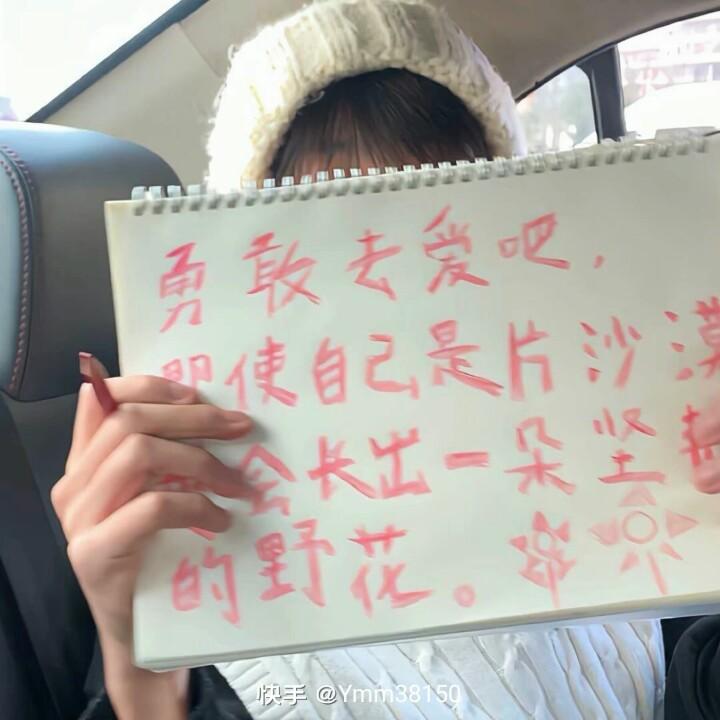 勇敢去爱吧,
即使自己是片沙漠
会长出一朵坚
的野花。
快手 @Ymm38150